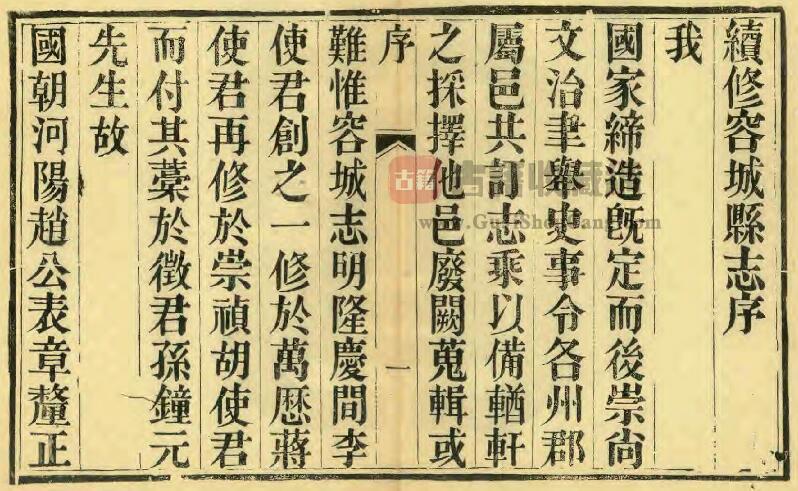 續修容城縣志序
我
國家締造既定而後崇尚
文治聿舉史事令各州郡
屬邑共訂志乘以備輶軒
之採擇他邑廢闕蒐輯或
序
一
難惟容城志明隆慶間李
使君創之一修於萬歷蔣
使君再修於崇禎胡使君
而付其藁於徵君孫鐘元
先生故
國朝河陽趙公表章釐正
古籍
古籍收藏